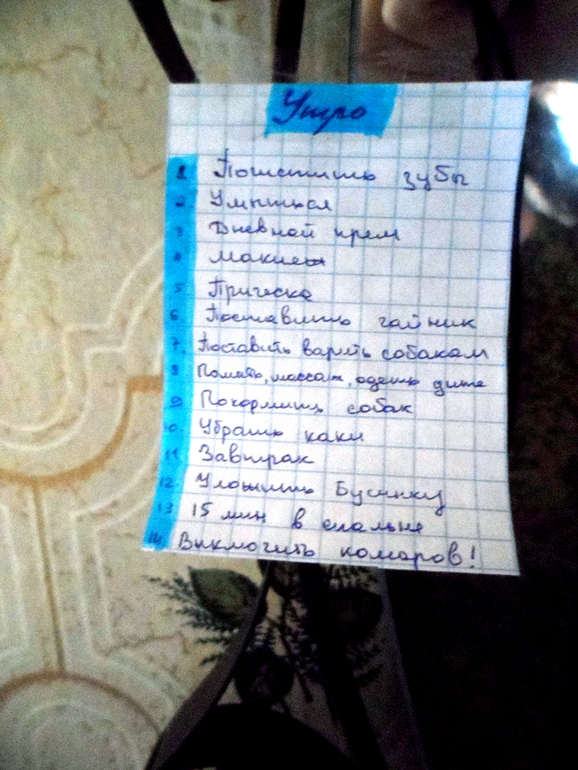 Утро
1. Почистить зубы
2. Умыться
3. Дневной крем
4. Макияж
5. Прическа
6. Поставить чайник
7. Поставить варить собакам
8. Помыть, массаж, одеть дитё
9. Покормить собак
10. Убрать каки
11. Завтрак
12. Уложить Бусинку
13 15 мин в спальне
14. Выключить комаров!